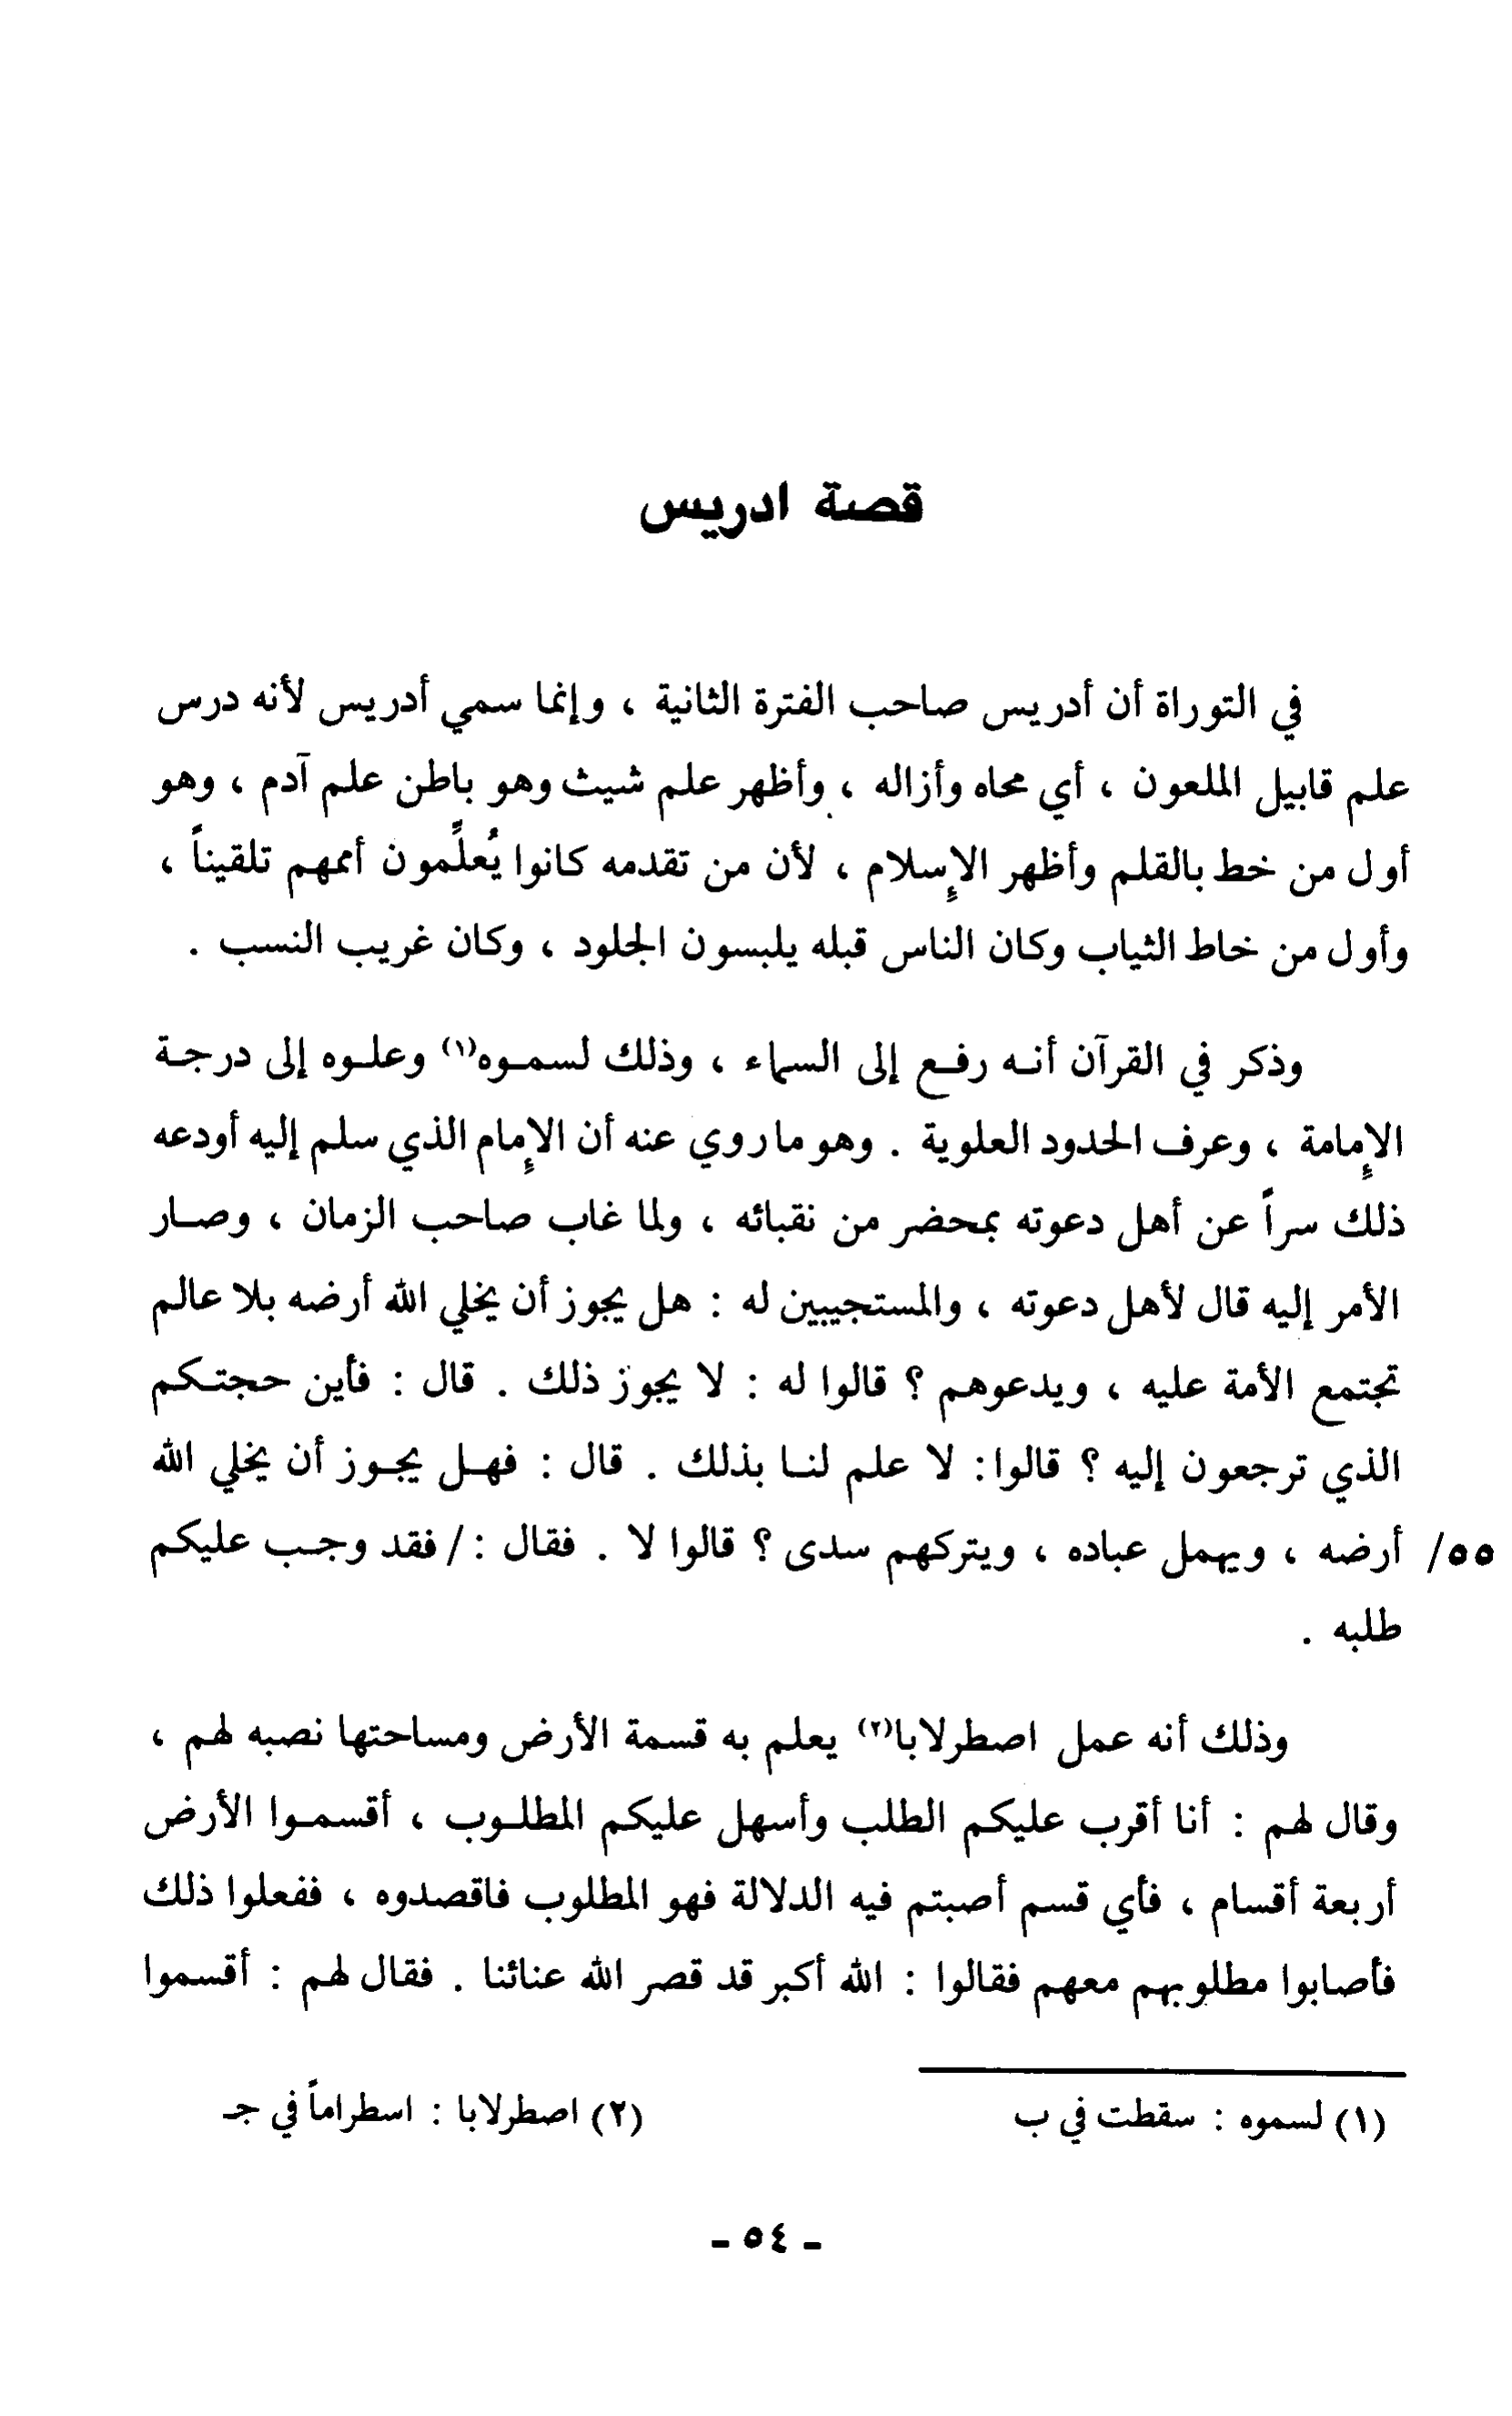 قصة ادريس
في التوراة أن أدريس صاحب الفترة الثانية ، وإنما سمي أدريس لأنه درس
علم قابيل الملعون ، أي محاه وأزاله ، وأظهر علم شيث وهو باطن علم آدم ، وهو
أول من خط بالقلم وأظهر الإسلام ، لأن من تقدمه كانوا يُعلِّمون أممهم تلقيناً ،
وأول من خاط الثياب وكان الناس قبله يلبسون الجلود ، وكان غريب النسب .
وذكر في القرآن أنه رفع إلى السماء ، وذلك لسموه(١) وعلوه إلى درجة
الإمامة ، وعرف الحدود العلوية . وهو ما روي عنه أن الإمام الذي سلم إليه أودعه
ذلك سراً عن أهل دعوته بمحضر من نقبائه ، ولما غاب صاحب الزمان ، وصار
الأمر إليه قال لأهل دعوته ، والمستجيبين له : هل يجوز أن يخلي الله أرضه بلا عالم
تجتمع الأمة عليه ، ويدعوهم ؟ قالوا له : لا يجوز ذلك . قال : فأين حجتكم
الذي ترجعون إليه ؟ قالوا : لا علم لنا بذلك . قال : فهل يجوز أن يخلي الله
٥٥/ أرضه ، ويهمل عباده ، ويتركهم سدى ؟ قالوا لا . فقال : / فقد وجب عليكم
طلبه .
وذلك أنه عمل اصطرلابا(٢) يعلم به قسمة الأرض ومساحتها نصبه لهم ،
وقال لهم : أنا أقرب عليكم الطلب وأسهل عليكم المطلوب ، أقسموا الأرض
أربعة أقسام ، فأي قسم أصبتم فيه الدلالة فهو المطلوب فاقصدوه ، ففعلوا ذلك
فأصابوا مطلوبهم معهم فقالوا : الله أكبر قد قصر الله عنائنا . فقال لهم : أقسموا
(١) لسموه : سقطت في ب
(٢) اصطرلابا : اسطراماً في جـ
- ٥٤ -